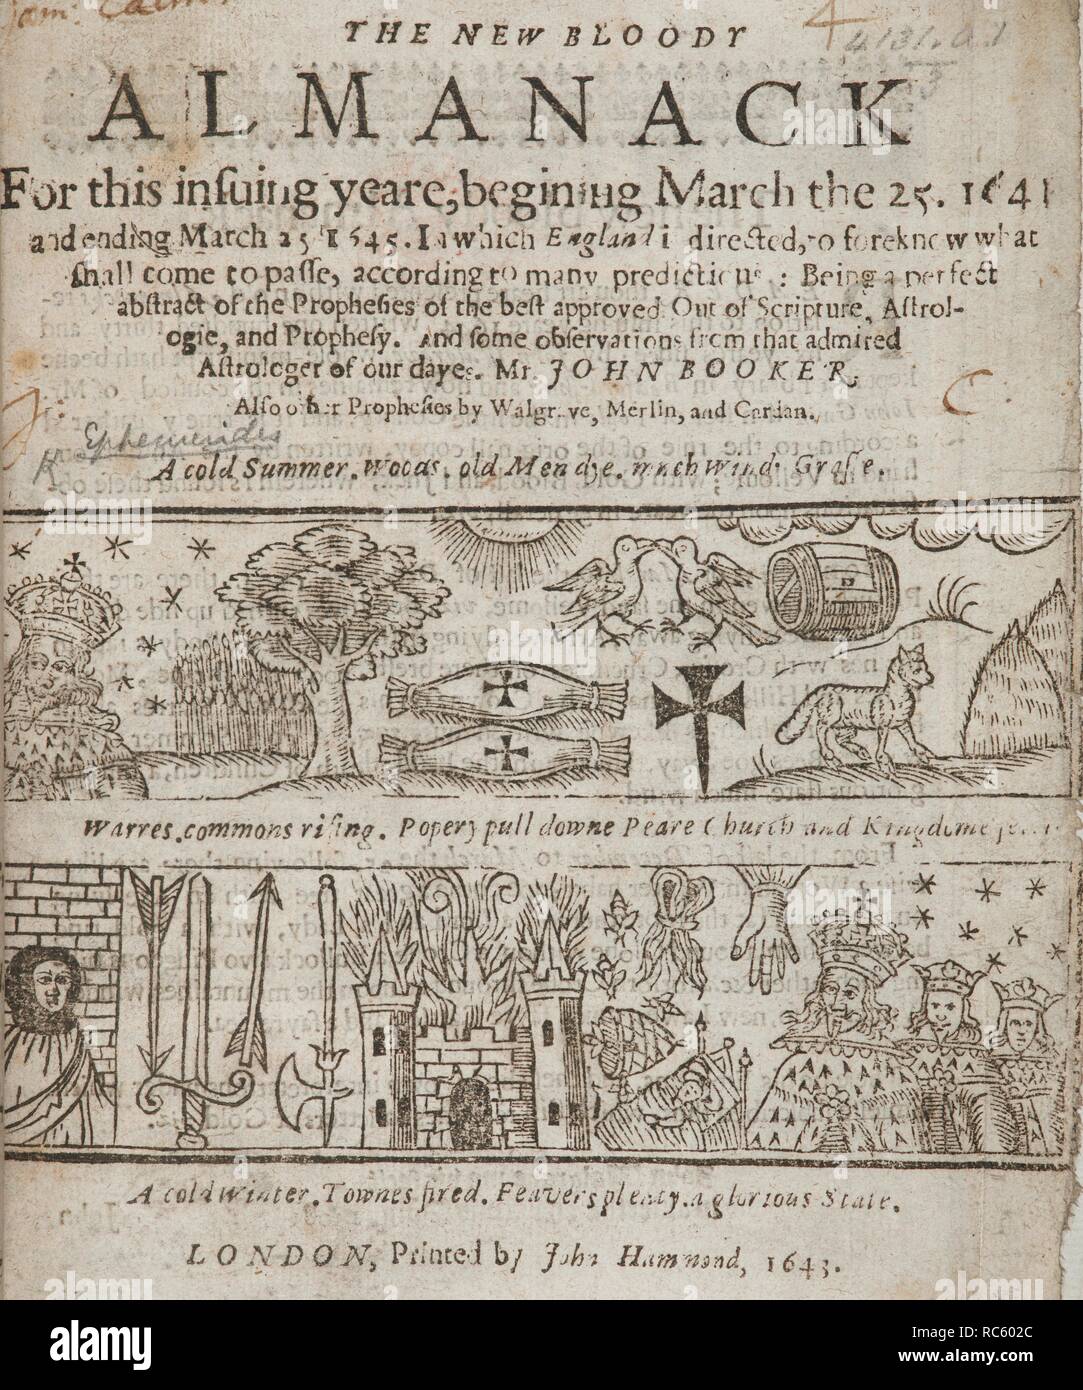 THE NEW BLOODY
ALMANACK
For this inſuing yeare, begining March the 25. 1641
and ending March 25 1645. In which England i directed, to foreknow what
ſhall come to paſſe, according to many predictions : Being a perfect
abſtract of the Propheſies of the beſt approved Out of Scripture, Aſtrol-
ogie, and Propheſy. And ſome obſervations from that admired
Aſtrologer of our dayes. Mr. JOHN BOOKER,
Alſo other Propheſies by Walgrave, Merlin, and Cardan.
Ephemerides
A cold Summer. Woods. old Men dye. much Wind. Graſſe.
Warres. commons riſing. Popery pull downe Peare Church and Kingdome
A cold Winter. Townes fired. Feavers plenty. a glorious State.
LONDON, Printed by John Hammond, 1643.
alamy
Image ID: RC602C
www.alamy.com